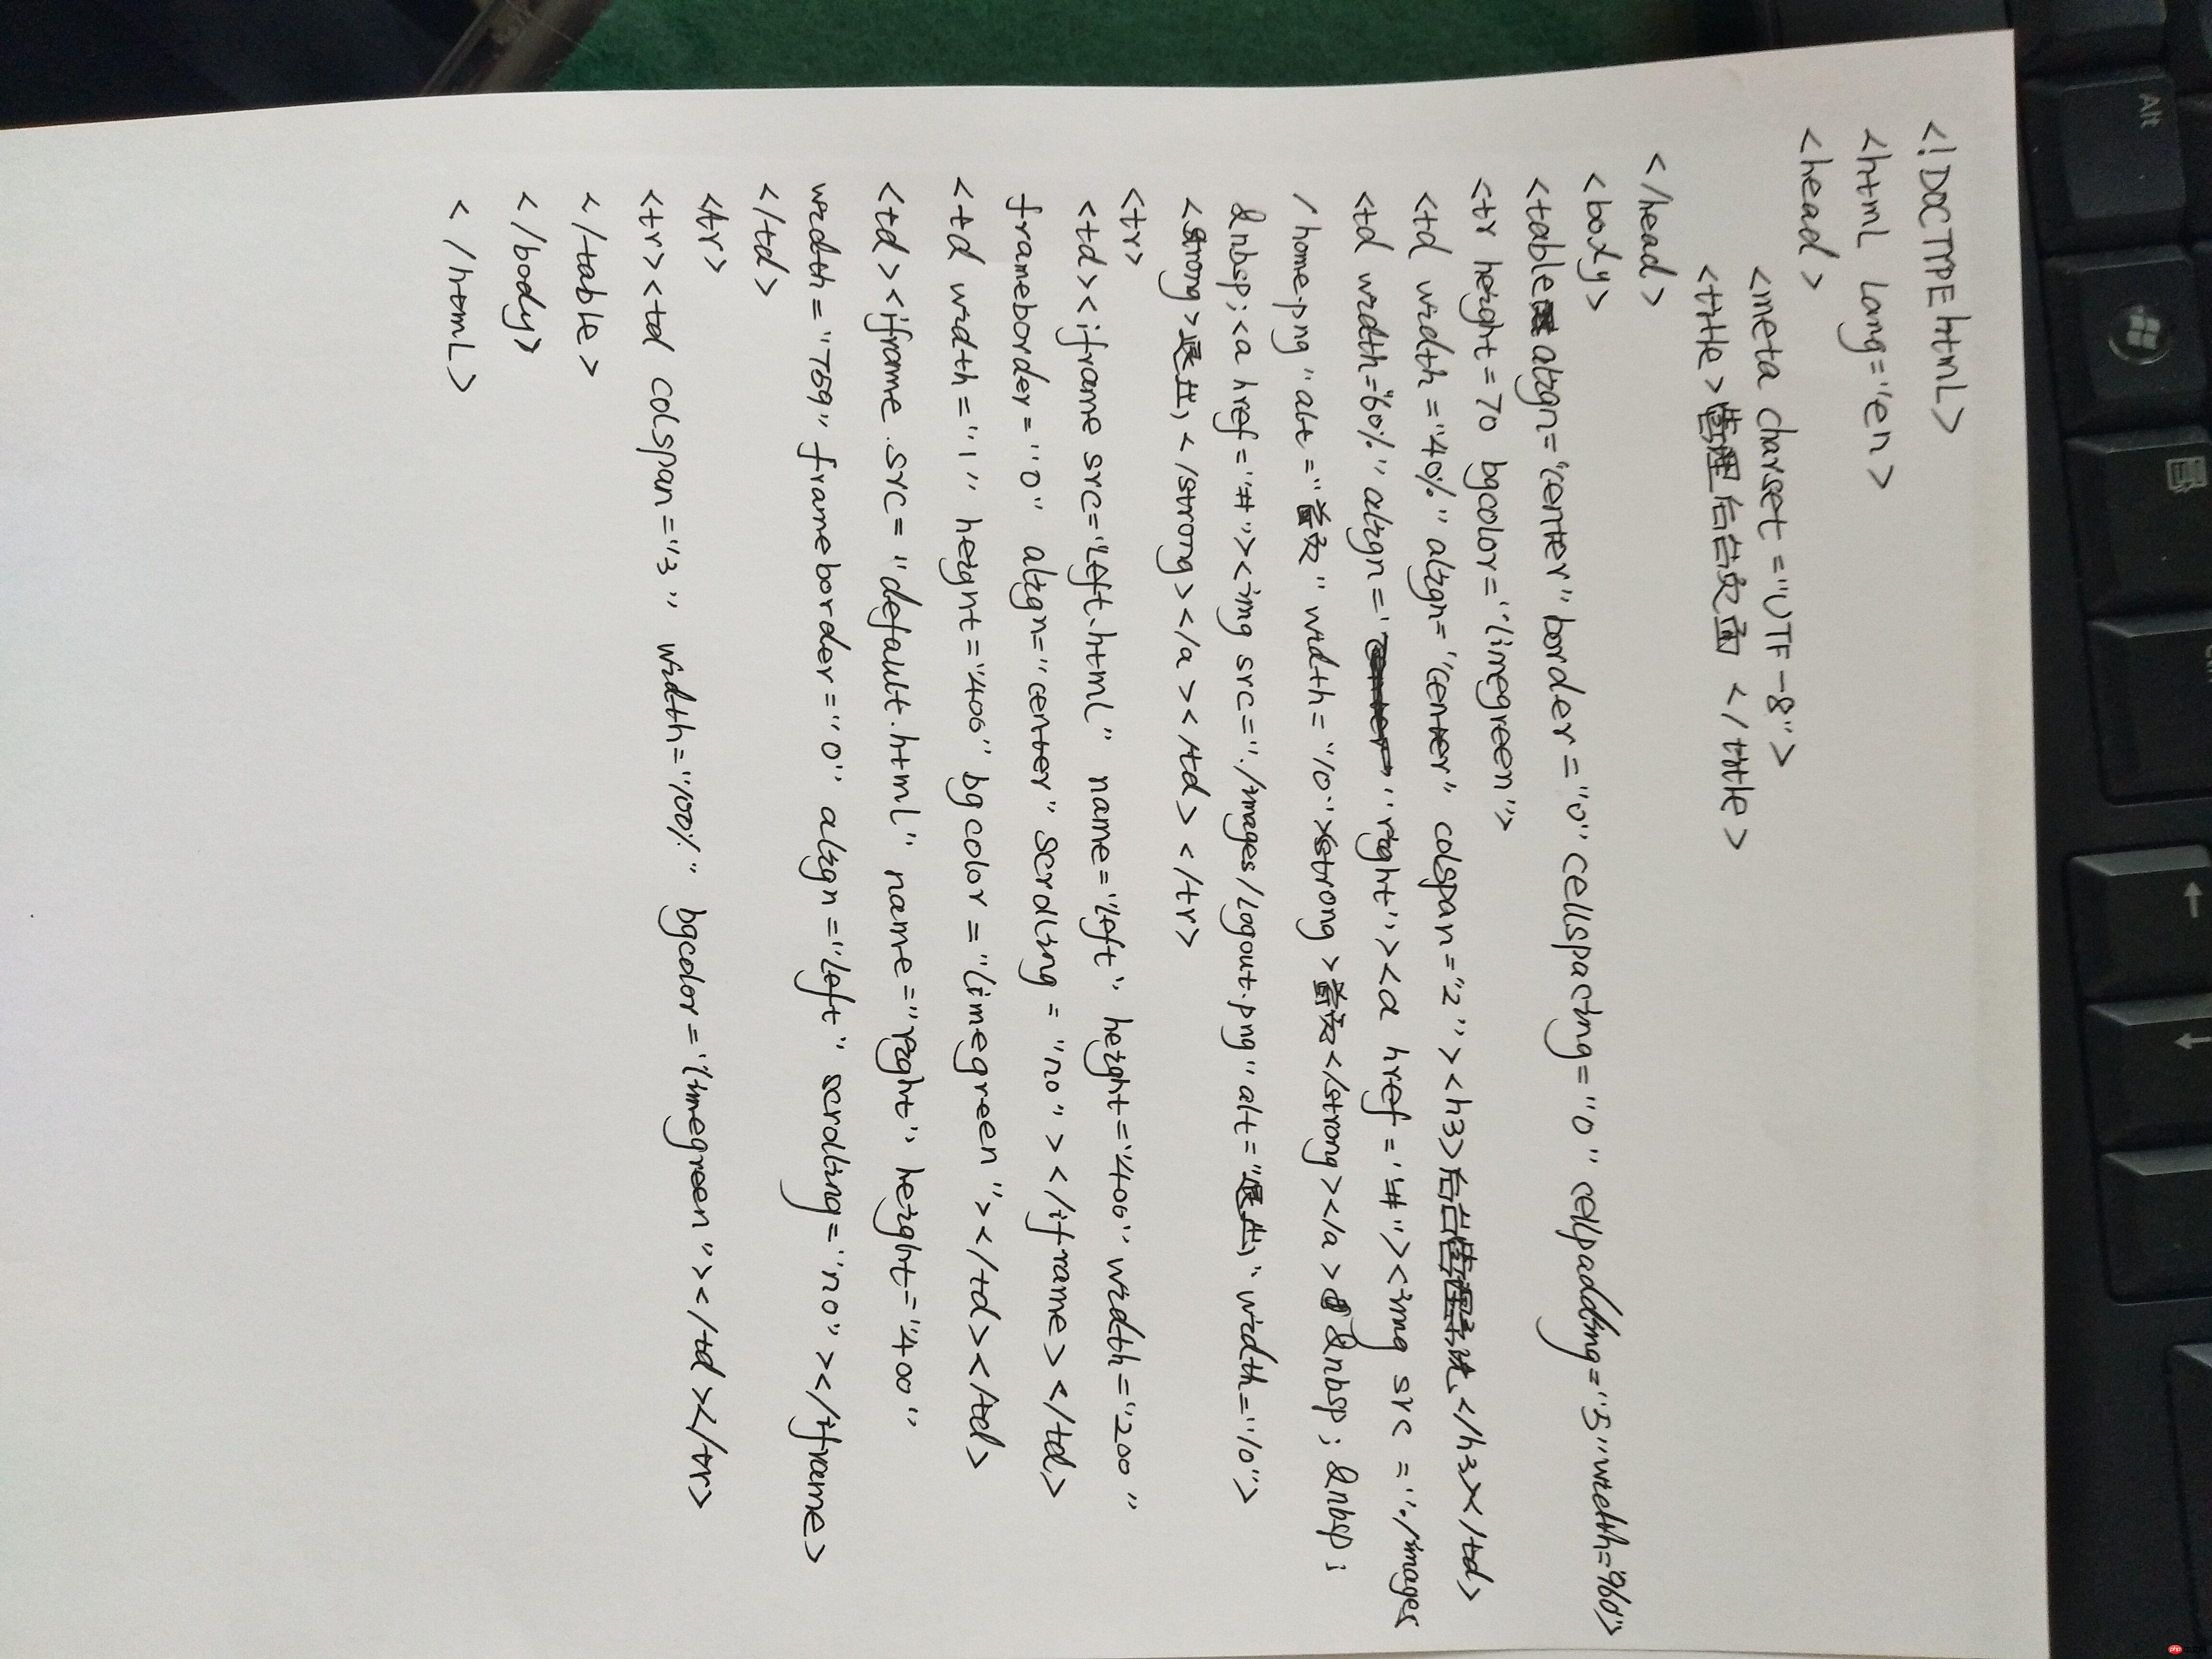 <!DOCTYPE html>
<html lang="en>
<head>
<meta charset="UTF-8">
<title>管理后台页面</title>
</head>
<body>
<table align="center" border="0" cellspacing="0" cellpadding="5" width="960">
<tr height=70 bgcolor="limegreen">
<td width="40%" align="center" colspan="2"><h3>后台管理系统</h3></td>
<td width="60%" align="right"><a href="#"><img src="./images
/home.png" alt="首页" width="10"><strong>首页</strong></a>&nbsp;&nbsp;
&nbsp;<a href="#"><img src="./images/logout.png" alt="退出" width="10">
<strong>退出</strong></a></td></tr>
<tr>
<td><iframe src="left.html" name="left" height="400" width="200"
frameborder="0" align="center" scrolling="no"></iframe></td>
<td width="1" height="400" bgcolor="limegreen"></td></td>
<td><iframe src="default.html" name="right" height="400"
width="759" frameborder="0" align="left" scrolling="no"></iframe>
</td>
</tr>
<tr><td colspan="3" width="100%" bgcolor="limegreen"></td></tr>
</table>
</body>
</html>
Alt
php